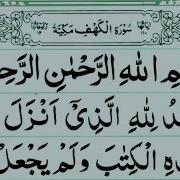 سُوْرَةُ الْكَهْفِ مَكِّيَّةٌ
اللهِ الرَّحْمٰنِ الرَّحِ
لِلّٰهِ الَّذِيْٓ اَنْزَلَ
الْكِتٰبَ وَلَمْ يَجْعَلْ